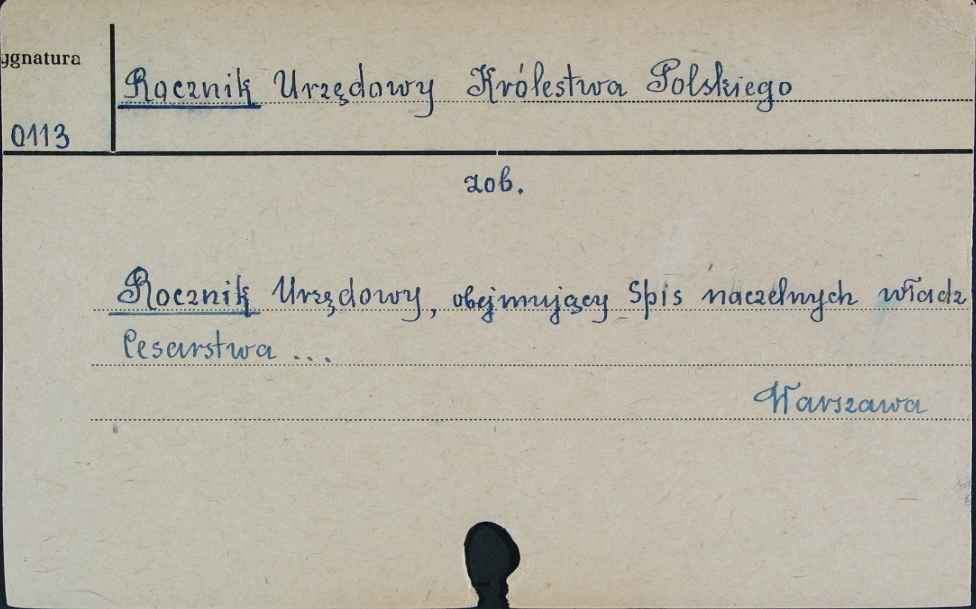 ygnatura
Rocznik Urzędowy Królestwa Polskiego
0113
zob.
Rocznik Urzędowy, obejmujący Spis naczelnych władz
Cesarstwa ...
Warszawa